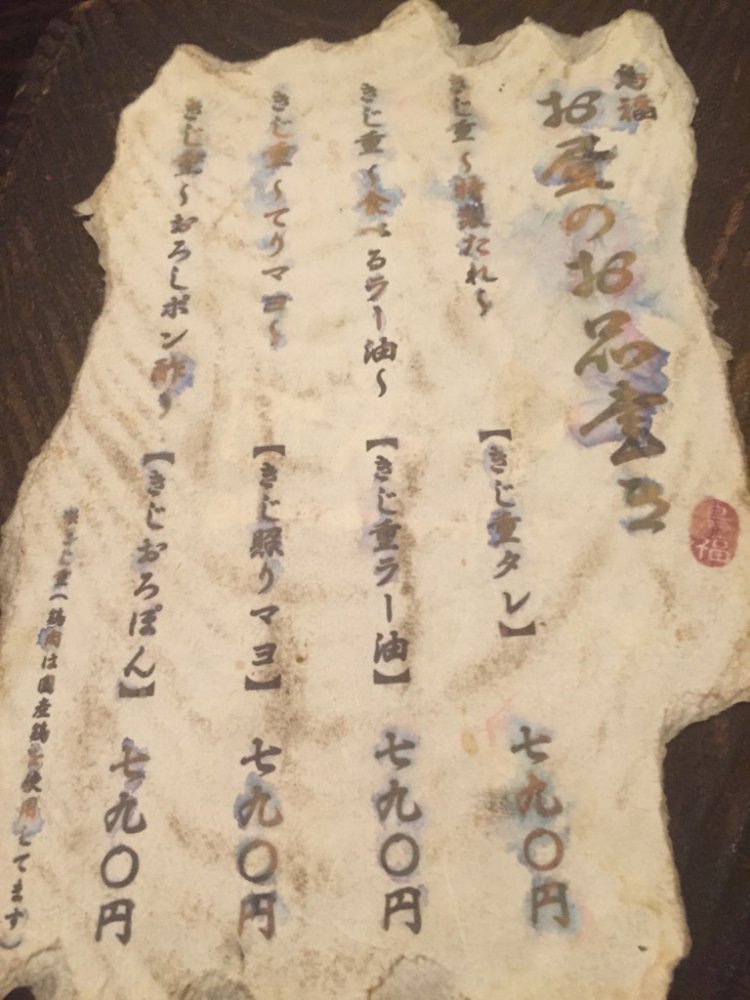 鳥福
お昼のお品書き
きじ重〜特製たれ〜
【きじ重タレ】
七九〇円
きじ重〜食べるラー油〜
【きじ重ラー油】
七九〇円
きじ重〜てりマヨ〜
【きじ照りマヨ】
七九〇円
きじ重〜おろしポン酢〜
【きじおろぽん】
七九〇円
きじ重（鶏肉は国産鶏を使用してます）